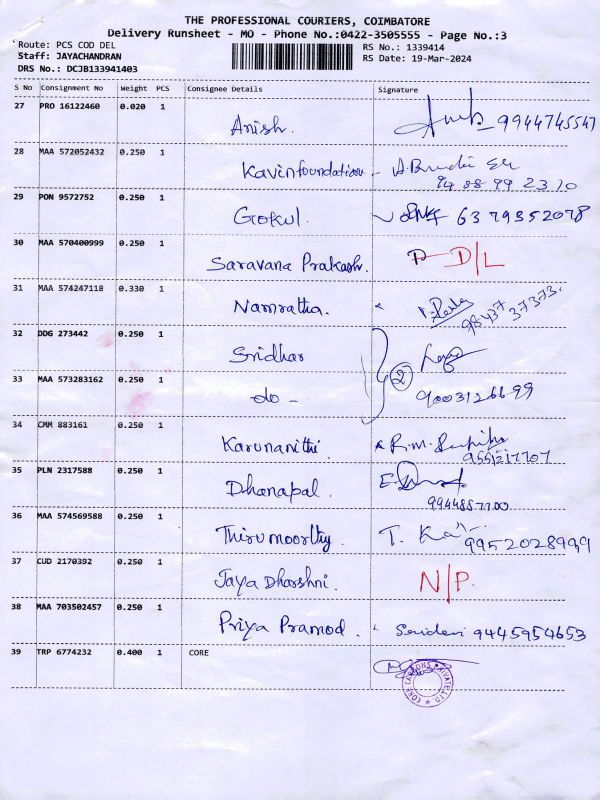 THE PROFESSIONAL COURIERS, COIMBATORE
Delivery Runsheet - MO - Phone No.:0422-3505555 - Page No.:3
Route: PCS COD DEL RS No.: 1339414
Staff: JAYACHANDRAN RS Date: 19-Mar-2024
DRS No.: DCJB133941403
S No Consignment No Weight PCS Consignee Details Signature
27 PRO 16122460 0.020 1
Anish. 9944745547
28 MAA 572052432 0.250 1
Kavinfoundation
94 88 99 23 70
29 PON 9572752 0.250 1
Gokul. 6379352078
30 MAA 570400999 0.250 1
Saravana Prakash. D/L
31 MAA 574247118 0.330 1
Namratha. 98437 37373.
32 DDG 273442 0.250 1
Sridhar 2
33 MAA 573283162 0.250 1
do - 9003126699
34 CMM 883161 0.250 1
Karunanithi R.M.
9551217707
35 PLN 2317588 0.250 1
Dhanapal.
9944857700
36 MAA 574569588 0.250 1
Thirumoorthy. T.
9952028999
37 CUD 2170392 0.250 1
Jaya Dharshni. N/P.
38 MAA 703502457 0.250 1
Priya Pramod. Sridevi 9445954653
39 TRP 6774232 0.400 1 CORE